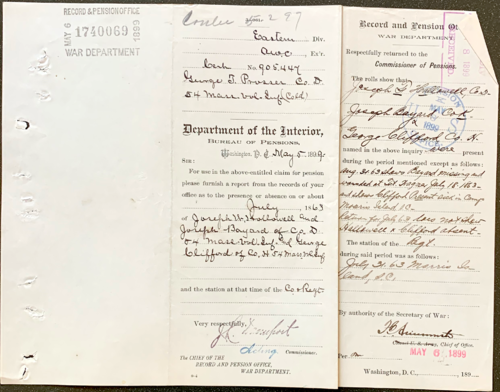 RECORD AND PENSION OFFICE
MAY 6
1740069
1899
WAR DEPARTMENT
2 97
Eastern Div.
Ex'r.
No. 905447
George T. Prosser Co D.
54 Mass. Vol. Inf (Cold)
Department of the Interior,
BUREAU OF PENSIONS,
Washington, D. C. May 5, 1899.
SIR:
For use in the above-entitled claim for pension
please furnish a report from the records of your
office as to the presence or absence on or about
July, 1863
of Joseph H. Hallowell and
Joseph Bayard of Co. D.
54 Mass. Vol. Inf. and George
Clifford of Co. H 54 Mass. Vol. Inf
and the station at that time of the Co & Regt.
Very respectfully,
Acting Commissioner.
The CHIEF OF THE
RECORD AND PENSION OFFICE,
WAR DEPARTMENT.
Record and Pension Of
WAR DEPARTMENT
Respectfully returned to the
Commissioner of Pensions.
The rolls show that
Joseph Hallowell Co. D.
Joseph Bayard Co.
George Clifford Co. H.
named in the above inquiry were present
during the period mentioned except as follows:
Aug. 31 63 shew Bayard missing and
wounded at Ft. Wagner July 18 1863.
Clifford Absent sick in Camp
Morris Island S.C.
Return for July 63 does not shew
Hallowell or Clifford absent.
The station of the Regt.
during said period was as follows:
July 31 63 Morris Is
land, S.C.
By authority of the Secretary of War:
Chief of Office.
MAY 6 1899
Per
Washington, D. C., 189